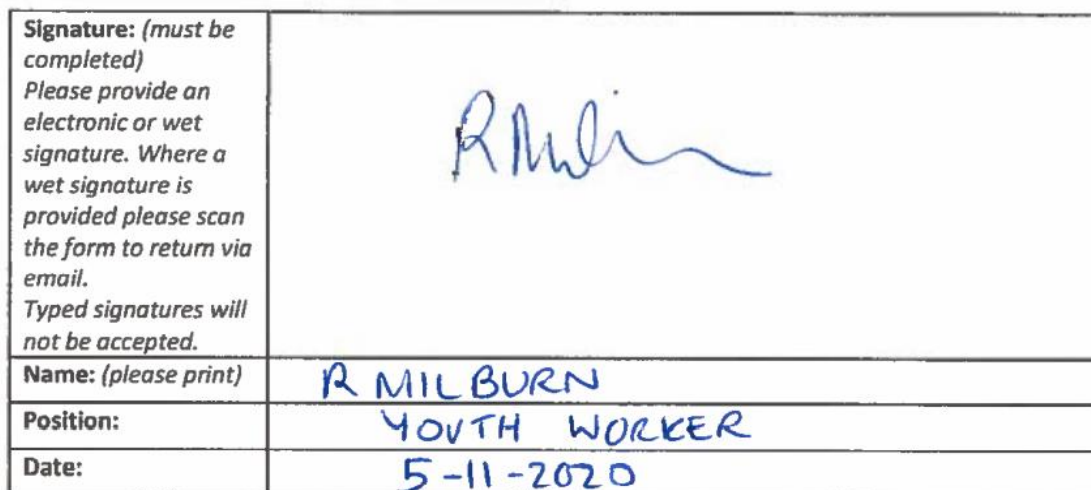 Signature: (must be
completed)
Please provide an
electronic or wet
signature. Where a
wet signature is
provided please scan
the form to return via
email.
Typed signatures will
not be accepted.
Name: (please print) R MILBURN
Position: YOUTH WORKER
Date: 5-11-2020